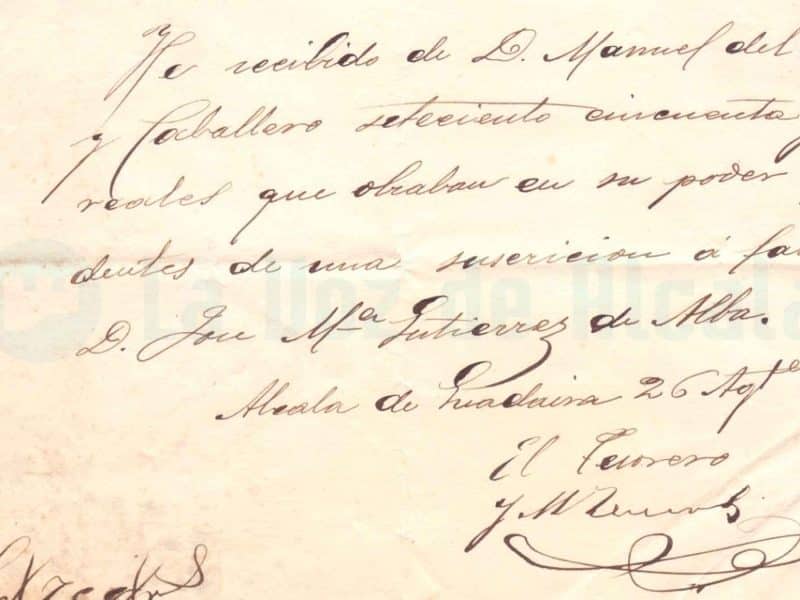 He recibido de D. Manuel del
y Caballero seteciento cincuenta y
reales que obraban en su poder
dentes de una suscricion á fa
D. Jose Mª Gutierrez de Alba.
La Voz de Alcalá
Alcala de Guadaira 26 Agte
El Tesorero